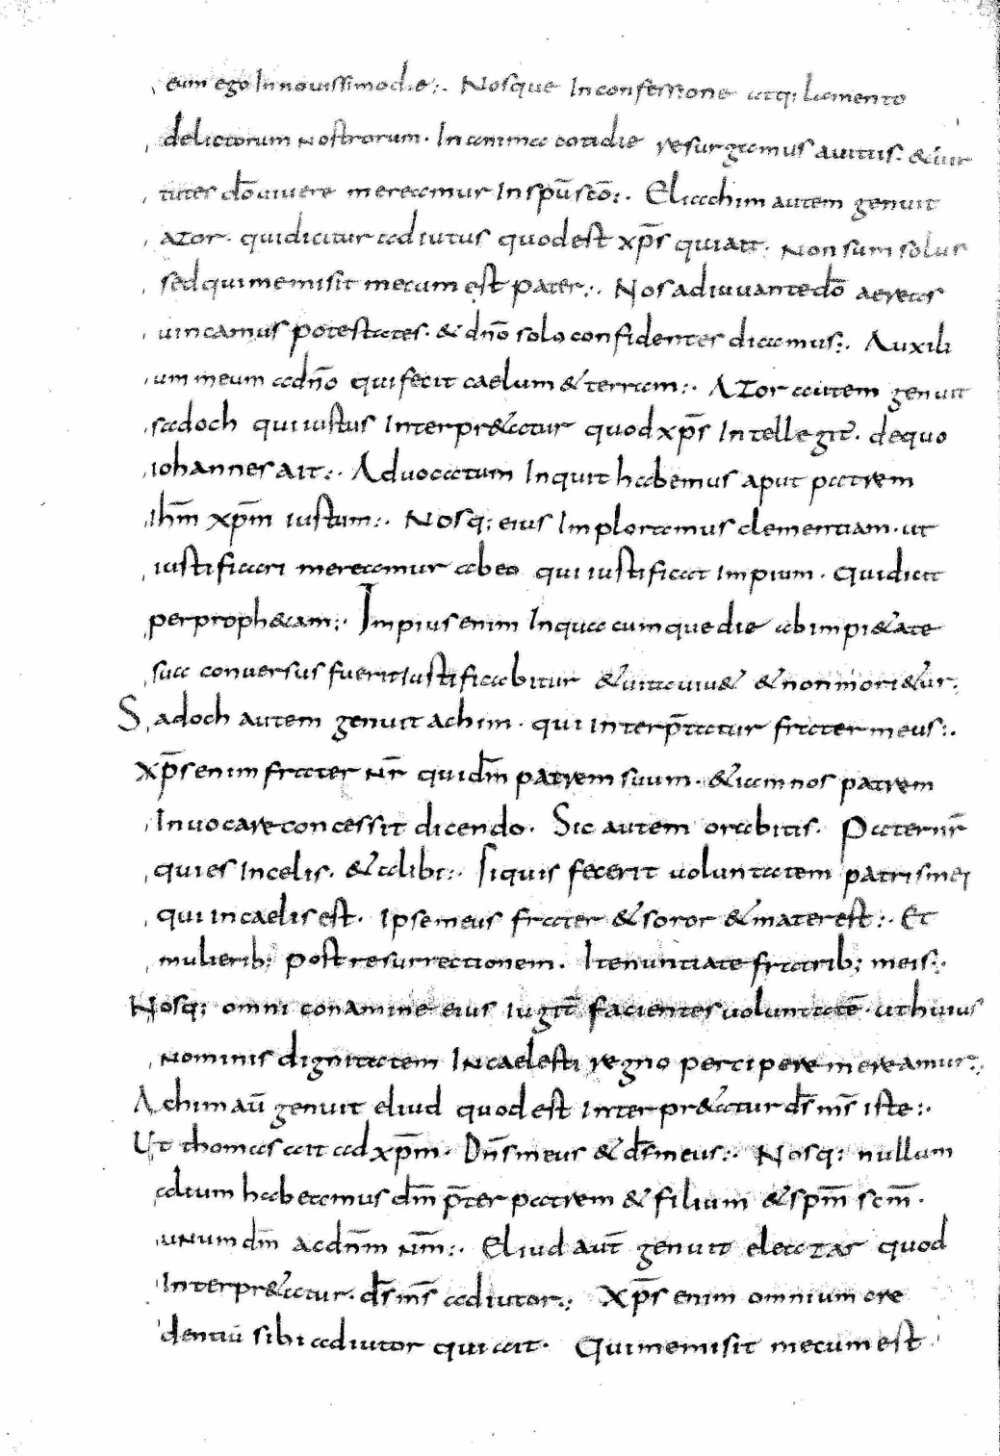 eum ego In nouissimo die:. Nosque In confessione atq; lamento
delictorum nostrorum. In anima cotidie resurgamus a uitiis. & uir
tutes dō uiuere mereamur In spū scō:. Eliachim autem genuit
azor. qui dicitur adiutus quod est xp̄s qui ait. Non sum solus
sed qui me misit mecum est pater:. Nos adiuuante dō aereas
uincamus potestates. & dn̄o solo confidenter dicamus:. Auxili
um meum a dn̄o qui fecit caelum & terram:. Azor autem genuit
sadoch qui iustus Interpr&atur quod xp̄s Intellegit̄. de quo
iohannes ait:. Aduocatum Inquit habemus aput patrem
ihm̄ xpm̄ iustum:. Nosq; eius Imploramus clementiam. ut
iustificari mereamur ab eo qui iustificat Impium. Qui dicit
per proph&am:. Impius enim In qua cumque die ab impi&ate
sua conuersus fuerit iustificabitur & uita uiu& & non mori&ur:.
Sadoch autem genuit achim. qui interpr̄tatur frater meus:.
Xp̄s enim frater nr̄ qui dm̄ patrem suum. & iam nos patrem
Inuocare concessit dicendo. Sic autem orabitis. Pater nr̄
qui es In celis. & alibi:. Siquis fecerit uoluntatem patris mei
qui in caelis est. Ipse meus frater & soror & mater est:. Et
mulierib; post resurrectionem. Ite nuntiate fratrib; meis:.
Nosq; omni conamine eius iugit̄ facientes uoluntatē. ut huius
nominis dignitatem In caelesti regno percipere mereamur:.
Achim aū genuit eliud quod est Interpr&atur ds̄ ms̄ iste:.
Ut thomas ait ad xpm̄. Dn̄s meus & ds̄ meus:. Nosq; nullum
alium habeamus dm̄ p̄ter patrem & filium & spm̄ scm̄.
unum dm̄ ac dn̄m nm̄:. Eliud aut̄ genuit eleazar quod
Interpr&atur. ds̄ ms̄ adiutor:. Xp̄s enim omnium cre
dentiū sibi adiutor qui ait. Qui me misit mecum est